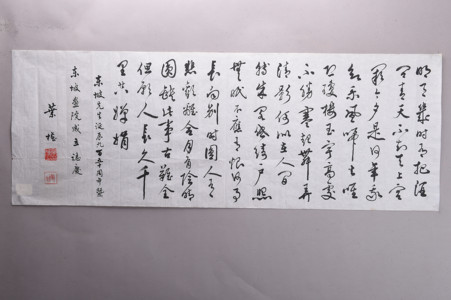 明月幾時有把酒
問青天不知天上宮
闕今夕是何年我
欲乘風歸去唯
恐瓊樓玉宇高處
不勝寒起舞弄
清影何似在人間
轉朱閣低綺户照
無眠不應有恨何事
長向別時圓人有
悲歡離合月有陰晴
圓缺此事古難全
但願人長久千
里共嬋娟
東坡先生誕九百五十周年暨
東坡畫院成立誌慶
葉